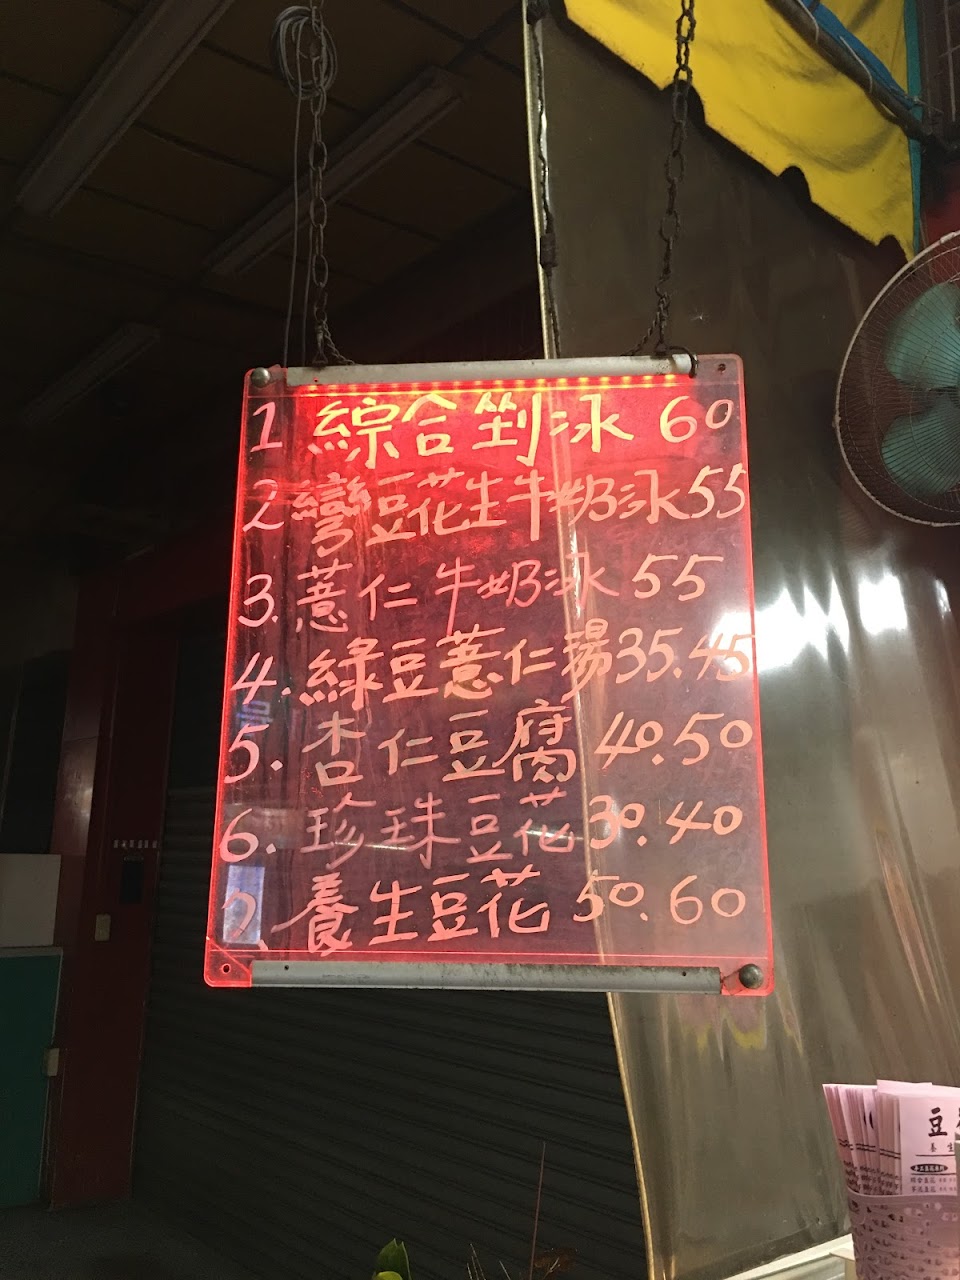 1 綜合剉冰 60
2 彎豆花生牛奶冰 55
3. 薏仁牛奶冰 55
4. 綠豆薏仁湯 35.45
5. 杏仁豆腐 40.50
6. 珍珠豆花 30.40
7. 養生豆花 50.60
豆
養生